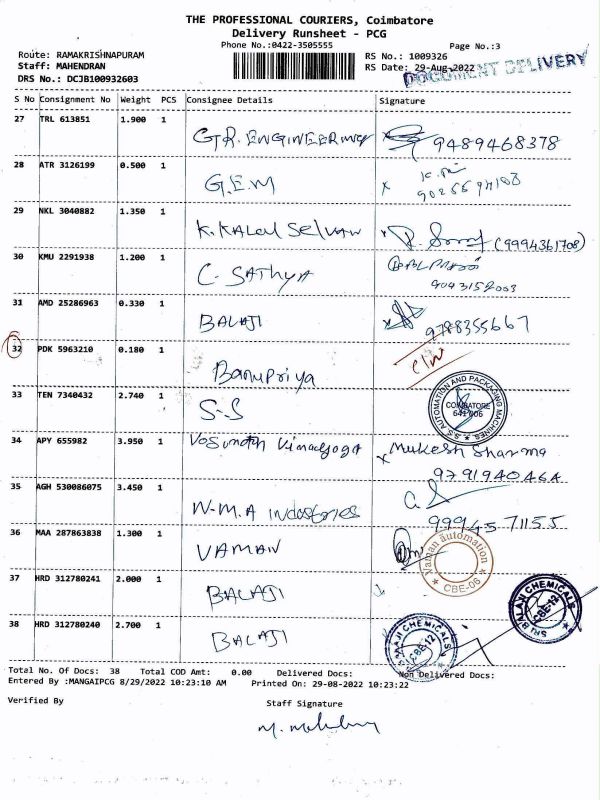 THE PROFESSIONAL COURIERS, Coimbatore
Delivery Runsheet - PCG
Phone No.:0422-3505555
Page No.:3
Route: RAMAKRISHNAPURAM
Staff: MAHENDRAN
DRS No.: DCJB100932603
RS No.: 1009326
RS Date: 29-Aug-2022
DOCUMENT DELIVERY
S No Consignment No Weight PCS Consignee Details Signature
27 TRL 613851 1.900 1 G.R. ENGINEERING 9489468378
28 ATR 3126199 0.500 1 G.E.M x
29 NKL 3040882 1.350 1 K. Kalai Selvan x (9994361708)
30 KMU 2291938 1.200 1 C. SATHYA
9043152003
31 AMD 25286963 0.330 1 BALAJI x 9788355667
32 PDK 5963210 0.180 1 Banupriya
33 TEN 7340432 2.740 1 S-S
S.S AUTOMATION AND PACKAGING MACHINES
COIMBATORE
641 006
34 APY 655982 3.950 1 x Mukesh Sharma
35 AGH 530086075 3.450 1 W-M.A industries
36 MAA 287863838 1.300 1 VAMAN
Vaman automation
CBE-06
37 HRD 312780241 2.000 1 BALAJI
SRI BALAJI CHEMICALS
CBE-12
38 HRD 312780240 2.700 1 BALAJI
SRI BALAJI CHEMICALS
CBE-12
Total No. Of Docs: 38 Total COD Amt: 0.00 Delivered Docs: Non Delivered Docs:
Entered By :MANGAIPCG 8/29/2022 10:23:10 AM Printed On: 29-08-2022 10:23:22
Verified By Staff Signature